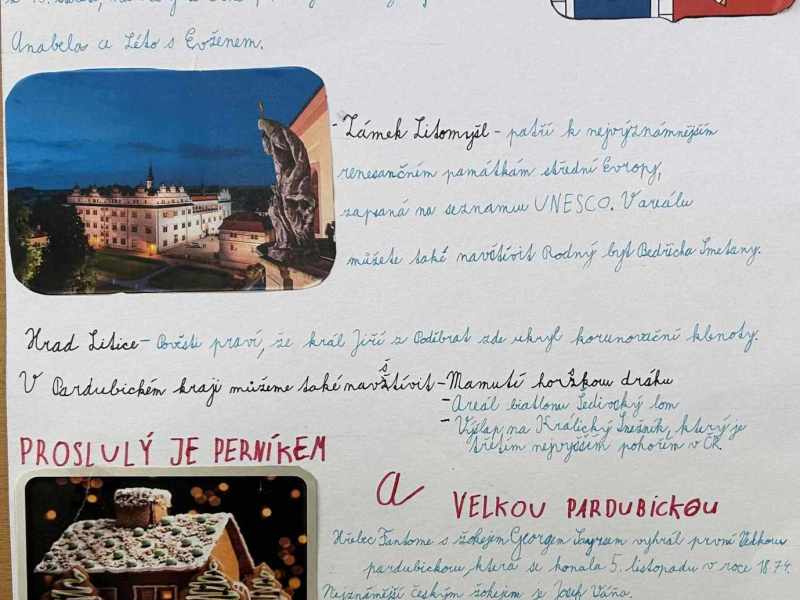 Anabela a Léto s Evženem.
- Zámek Litomyšl - patří k nejvýznámnějším
renesančním památkám střední Evropy,
zapsaná na seznamu UNESCO. V areálu
můžete také navštívit Rodný byt Bedřicha Smetany.
Hrad Litice - Pověsti praví, že král Jiří z Poděbrat zde ukryl korunovační klenoty.
V Pardubickém kraji můžeme také navštívit - Mamutí horskou dráhu
- Areál biatlonu Šedivský lom
- Výšlap na Králický Sněžník, který je
třetím nejvyšším pohořím v ČR
PROSLULÝ JE PERNÍKEM
a VELKOU PARDUBICKOU
Hřebec Fantome s žokejem Georgem vyhrál první Velkou
pardubickou, která se konala 5. listopadu v roce 1874.
Nejznámější českým žokejem je Josef Váňa.